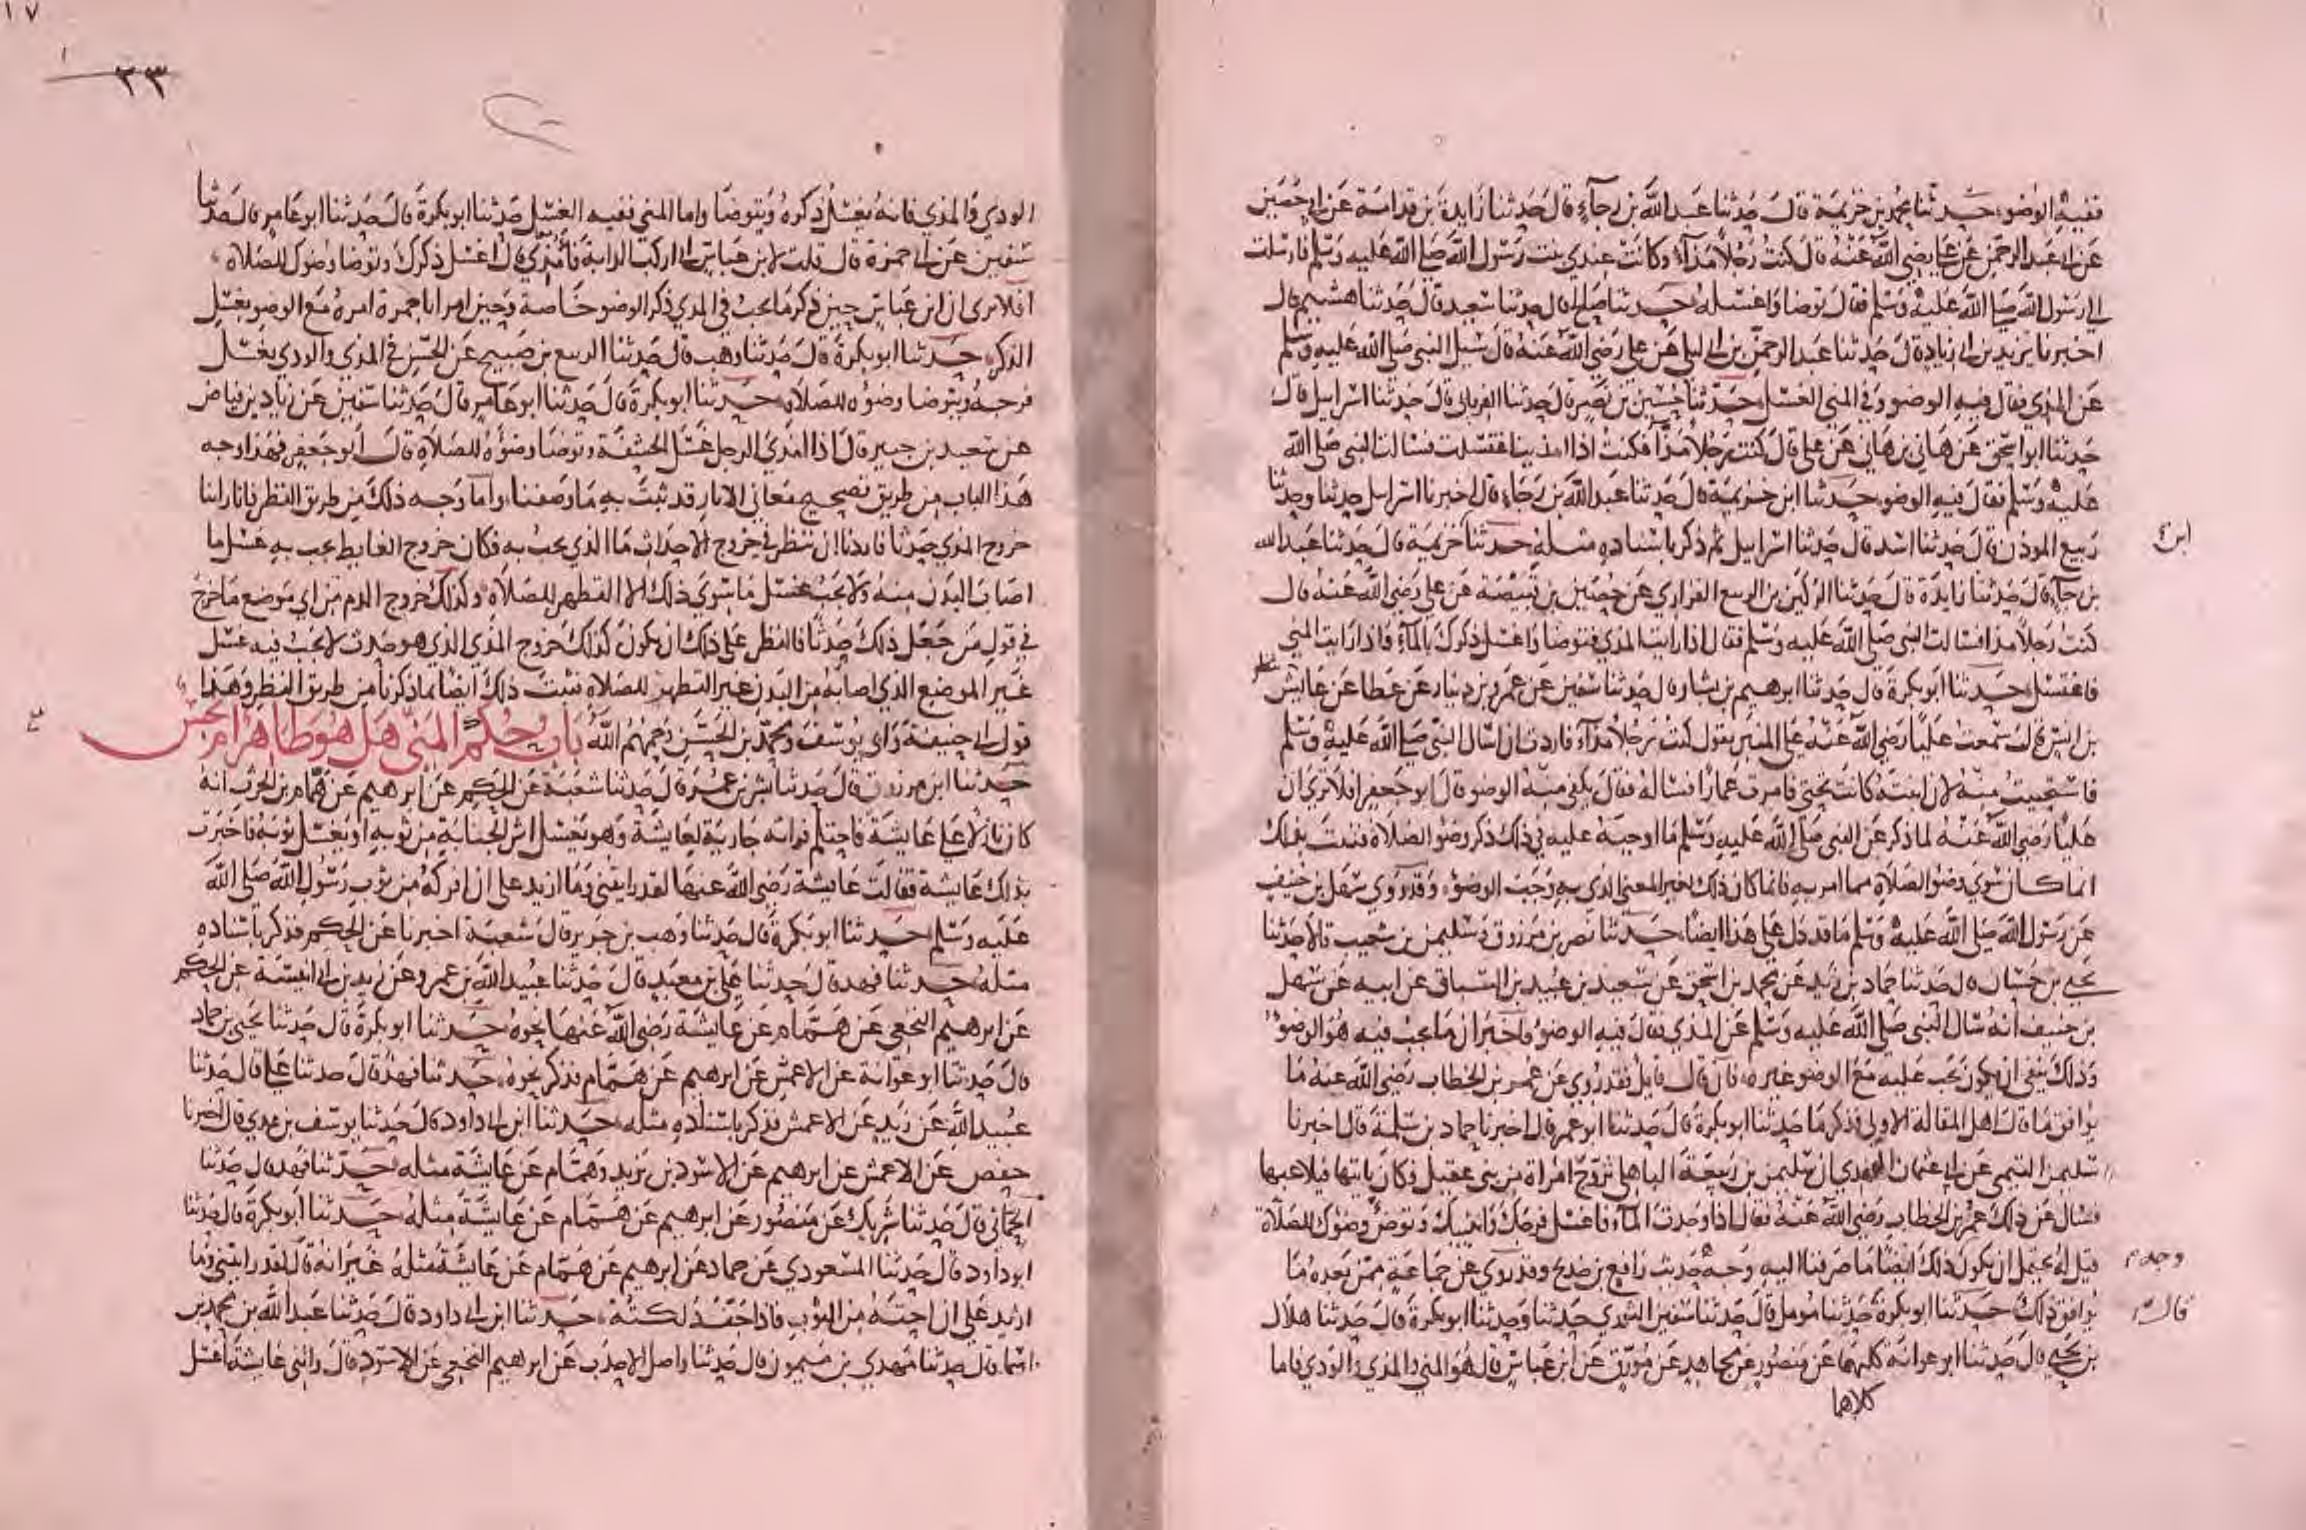 ففيه الوضوء حدثنا محمد بن خزيمة قال حدثنا عبد الله بن رجاء قال حدثنا زايدة بن قدامة عن ابي حصين
عن ابي عبد الرحمن عن علي رضي الله عنه قال كنت رجلا مذاء وكانت عندي بنت رسول الله صلى الله عليه وسلم فارسلت
الى رسول الله صلى الله عليه وسلم فقال توضا واغسله حدثنا صالح قال حدثنا سعيد قال حدثنا هشيم قال
اخبرنا يزيد بن ابي زياد قال حدثنا عبد الرحمن بن ابي ليلى عن علي رضي الله عنه قال سيل النبي صلى الله عليه وسلم
عن المذي فقال فيه الوضوء وفي المني الغسل حدثنا حسين بن نصر قال حدثنا الفريابي قال حدثنا اسرايل قال
حدثنا ابو اسحق عن هاني بن هاني عن علي قال كنت رجلا مذاء فكنت اذا امذيت اغتسلت فسالت النبي صلى الله
عليه وسلم فقال فيه الوضوء حدثنا ابن خزيمة قال حدثنا عبد الله بن رجاء قال اخبرنا اسرايل حدثنا وحدثنا
ربيع الموذن قال حدثنا اسد قال حدثنا اسراييل ثم ذكر باسناده مثله حدثنا خزيمة قال حدثنا عبد الله
ابن
بن رجاء قال حدثنا زايدة قال حدثنا الركين بن الربيع الفزاري عن حصين بن قبيصة عن علي رضي الله عنه قال
كنت رجلا مذاء فسالت النبي صلى الله عليه وسلم فقال اذا رايت المذي فتوضا واغسل ذكرك بالماء فاذا رايت المني
فاغتسل حدثنا ابو بكرة قال حدثنا ابرهيم بن بشار قال حدثنا سفين عن عمرو بن دينار عن عطا عن عايش
بن انس قال سمعت عليا رضي الله عنه على المنبر يقول كنت رجلا مذاء فاردت ان اسال النبي صلى الله عليه وسلم
فاستحييت منه لان ابنته كانت تحتي فامرت عمارا فساله فقال يكفي منه الوضوء قال ابو جعفر افلا ترى ان
عليا رضي الله عنه لما ذكر عن النبي صلى الله عليه وسلم ما اوجبه عليه في ذلك ذكر وضوء الصلاة فثبت بذلك
انما كان سوى وضوء الصلاة مما امر به فانما كان ذلك لغير المعنى الذي به وجب الوضوء وقد روى سهل بن حنيف
عن رسول الله صلى الله عليه وسلم ما قد دل على هذا ايضا حدثنا نصر بن مرزوق وسليمن بن شعيب قالا حدثنا
يحيى بن حسان قال حدثنا حماد بن زيد عن محمد بن اسحق عن سعيد بن عبيد بن السباق عن ابيه عن سهل
بن حنيف انه سال النبي صلى الله عليه وسلم عن المذي فقال فيه الوضوء فاخبر ان ما يجب فيه هو الوضوء
وذلك ينفي ان يكون يجب عليه مع الوضوء غيره فان قال قايل فقد روي عن عمر بن الخطاب رضي الله عنه ما
يوافق ما قال اهل المقالة الاولى فذكر ما حدثنا ابو بكرة قال حدثنا ابو عمر قال اخبرنا حماد بن سلمة قال اخبرنا
سليمن التيمي عن ابي عثمان النهدي ان سليمن بن ربيعة الباهلي تزوج امراة من بني عقيل فكان ياتيها فيلاعبها
فسال عن ذلك عمر بن الخطاب رضي الله عنه فقال اذا وجدت الماء فاغسل فرجك وانثييك وتوضا وضوك للصلاة
قيل له يحتمل ان يكون ذلك ايضا ما صرفنا اليه وجه حديث رافع بن خديج وقد روي عن جماعة ممن بعده ما
وجه
يوافق ذلك حدثنا ابو بكرة حدثنا مومل قال حدثنا سفين الثوري حدثنا وحدثنا ابو بكرة قال حدثنا هلال
قال
بن يحيى قال حدثنا ابو عوانة كلهما عن منصور عن مجاهد عن مورق عن ابن عباس قال هو المني والمذي والودي فاما
كلاهما
١٧
٢٣
الودي والمذي فانه يغسل ذكره ويتوضا واما المني ففيه الغسل حدثنا ابو بكرة قال حدثنا ابو عامر قال حدثنا
سفين عن ابي حمزة قال قلت لابن عباس اني اركب الدابة فامذي قال اغسل ذكرك وتوضا وضوك للصلاة
افلا ترى ان ابن عباس حين ذكر ما يجب في المذي ذكر الوضو خاصة وحين امر ابا جمرة امره مع الوضو بغسل
الذكر حدثنا ابو بكرة قال حدثنا وهب قال حدثنا الربيع بن صبيح عن الحسن في المذي والودي يغسل
فرجه ويتوضا وضوه للصلاة حدثنا ابو بكرة قال حدثنا ابو عامر قال حدثنا سفين عن زياد بن فياض
عن سعيد بن جبير قال اذا امذى الرجل غسل الحشفة وتوضا وضوه للصلاة قال ابو جعفر فهذا وجه
هذا الباب من طريق تصحيح معاني الاثار قد ثبت به ما وصفنا واما وجه ذلك من طريق النظر فانا راينا
خروج المذي حدثا فاردنا ان ننظر في خروج الاحداث ما الذي يجب به فكان خروج الغايط يجب به غسل ما
اصاب البدن منه ولا يجب غسل ما سوى ذلك الا التطهر للصلاة وكذلك خروج الدم من اي موضع ما خرج
في قول من جعل ذلك حدثا فالنظر على ذلك ان يكون كذلك خروج المذي الذي هو حدث لا يجب فيه غسل
غير الموضع الذي اصابه من البدن غير التطهر للصلاة فثبت ذلك ايضا بما ذكرنا من طريق النظر وهذا
قول ابي حنيفة وابي يوسف ومحمد بن الحسن رحمهم الله باب حكم المني هل هو طاهر ام نجس
حدثنا ابن مرزوق قال حدثنا بشر بن عمر قال حدثنا شعبة عن الحكم عن ابرهيم عن همام بن الحرث انه
كان نازلا على عايشة فاحتلم فراته جارية لعايشة وهو يغسل اثر الجنابة من ثوبه او يغسل ثوبه فاخبرت
بذلك عايشة فقالت عايشة رضي الله عنها لقد رايتني وما ازيد على ان افركه من ثوب رسول الله صلى الله
عليه وسلم حدثنا ابو بكرة قال حدثنا وهب بن جرير قال شعبة اخبرنا عن الحكم فذكر باسناده
مثله حدثنا فهد قال حدثنا علي بن معبد قال حدثنا عبيد الله بن عمرو عن زيد بن ابي انيسة عن الحكم
عن ابرهيم النخعي عن همام عن عايشة رضي الله عنها نحوه حدثنا ابو بكرة قال حدثنا يحيى بن حماد
قال حدثنا ابو عوانة عن الاعمش عن ابرهيم عن همام فذكر نحوه حدثنا فهد قال حدثنا علي قال حدثنا
عبيد الله عن زيد عن الاعمش فذكر باسناده مثله حدثنا ابن ابي داود قال حدثنا يوسف بن عدي قال اخبرنا
حفص عن الاعمش عن ابرهيم عن الاسود بن يزيد وهمام عن عايشة مثله حدثنا فهد قال حدثنا
الحماني قال حدثنا شريك عن منصور عن ابرهيم عن همام عن عايشة مثله حدثنا ابو بكرة قال حدثنا
ابو داود قال حدثنا المسعودي عن حماد عن ابرهيم عن همام عن عايشة مثله غير انه قال لقد رايتني وما
ازيد على ان احته من الثوب فاذا جف دلكته حدثنا ابن ابي داود قال حدثنا عبد الله بن محمد بن
اسما قال حدثنا مهدي بن ميمون قال حدثنا واصل الاحدب عن ابرهيم النخعي عن الاسود قال راتني عايشة اغسل